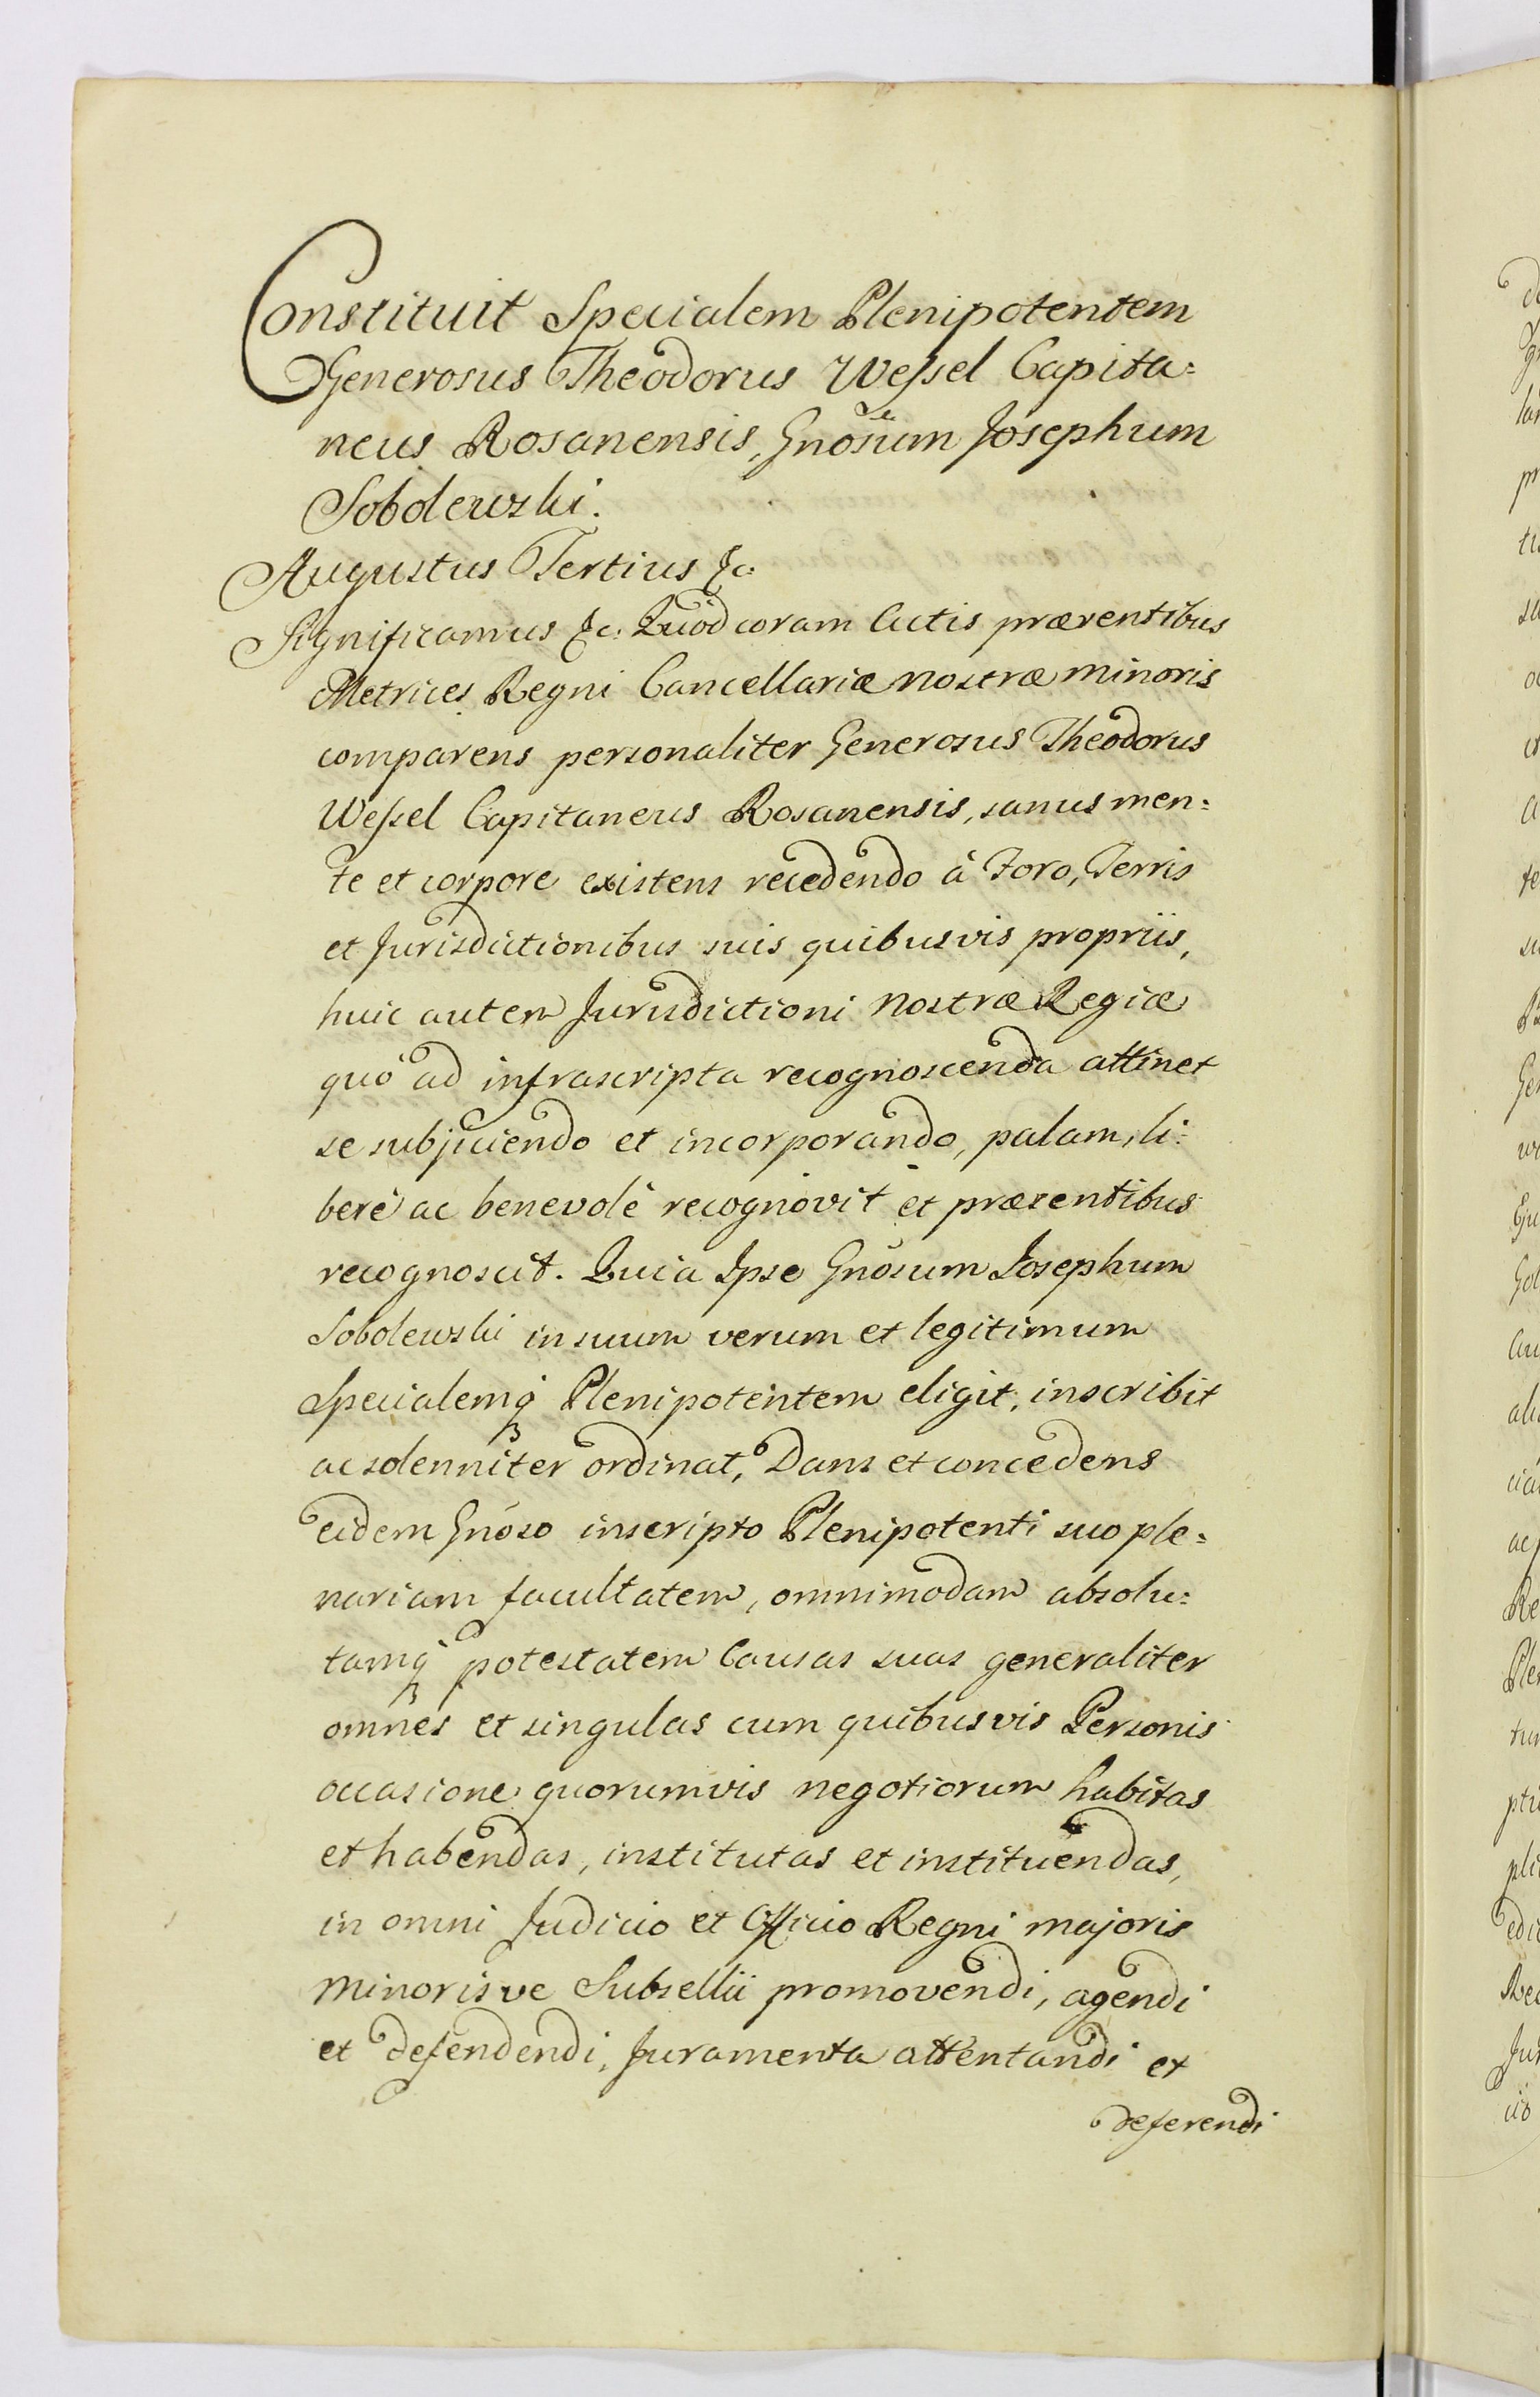 Constituit Specialem Plenipotentem
Generosus Theodorus Wessel Capita=
neus Rosanensis, Gnosum Josephum
Sobolewski.
Augustus Tertius &c:
Significamus &c: Quod coram Actis præsentibus
Metrices Regni Cancellariæ nostræ minoris
comparens personaliter Generosus Theodorus
Wessel Capitaneus Rosanensis, sanus men=
te et corpore existens recedendo à Foro, Terris
et Jurisdictionibus suis quibusvis propriis,
huic autem Jurisdictioni nostræ Regiæ
quò ad infrascripta recognoscenda attinet
se subjiciendo et incorporando, palam, li=
berè ac benevolè recognovit et præsentibus
recognoscit. Quia Ipse Gnosum Josephum
Sobolewski in suum verum et legitimum
Specialemq́ Plenipotentem eligit, inscribit
ac solenniter ordinat, Dans et concedens
eidem Gnoso inscripto Plenipotenti suo ple=
nariam facultatem, omnimodam absolu=
tamq́ potestatem Causas suas generaliter
omnes et singulas cum quibusvis Personis
occasione quorumvis negotiorum habitas
et habendas, institutas et instituendas,
in omni Judicio et Officio Regni majoris
minorisve Subsellii promovendi, agendi
et defendendi, Juramenta attentandi et
deferendi